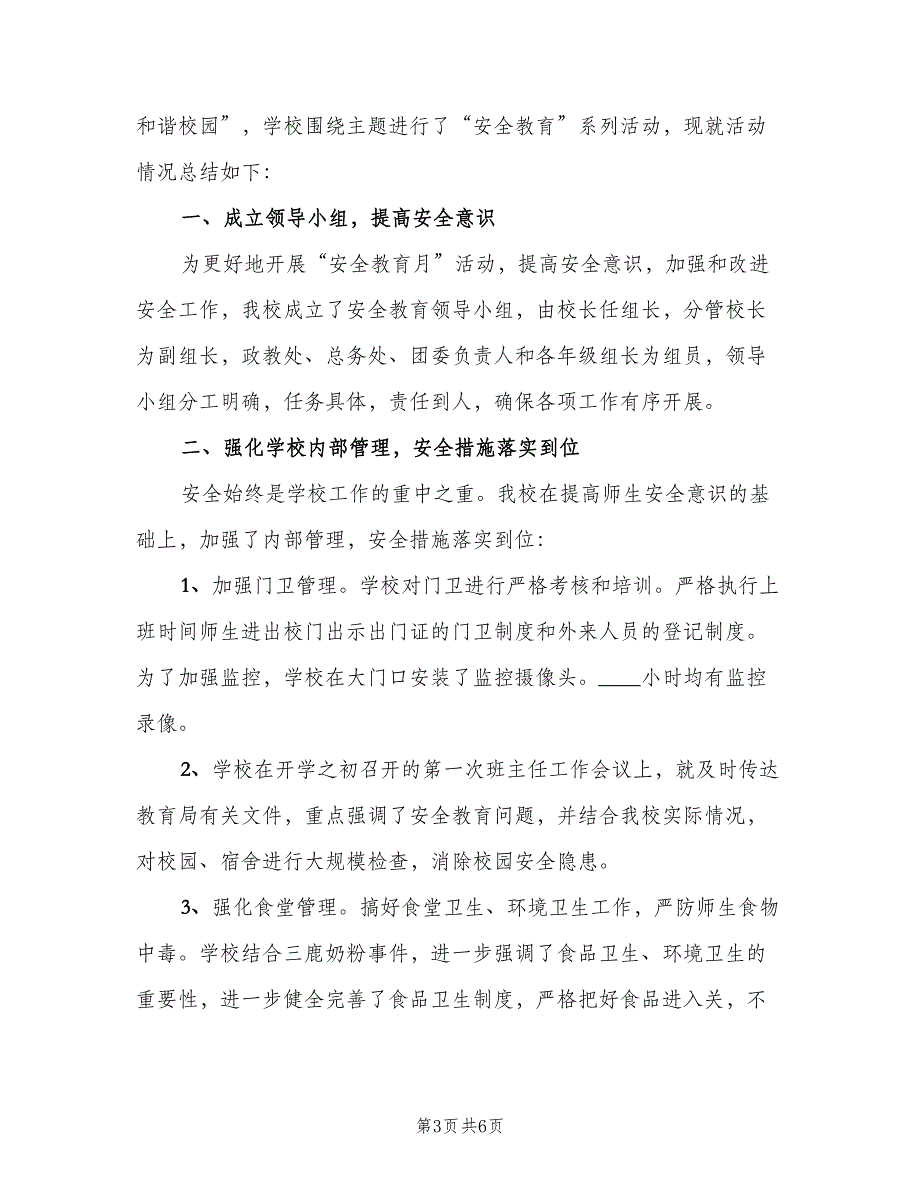 和谐校园”，学校围绕主题进行了“安全教育”系列活动，现就活动
情况总结如下：
一、成立领导小组，提高安全意识
为更好地开展“安全教育月”活动，提高安全意识，加强和改进
安全工作，我校成立了安全教育领导小组，由校长任组长，分管校长
为副组长，政教处、总务处、团委负责人和各年级组长为组员，领导
小组分工明确，任务具体，责任到人，确保各项工作有序开展。
二、强化学校内部管理，安全措施落实到位
安全始终是学校工作的重中之重。我校在提高师生安全意识的基
础上，加强了内部管理，安全措施落实到位：
1、加强门卫管理。学校对门卫进行严格考核和培训。严格执行上
班时间师生进出校门出示出门证的门卫制度和外来人员的登记制度。
为了加强监控，学校在大门口安装了监控摄像头。____小时均有监控
录像。
2、学校在开学之初召开的第一次班主任工作会议上，就及时传达
教育局有关文件，重点强调了安全教育问题，并结合我校实际情况，
对校园、宿舍进行大规模检查，消除校园安全隐患。
3、强化食堂管理。搞好食堂卫生、环境卫生工作，严防师生食物
中毒。学校结合三鹿奶粉事件，进一步强调了食品卫生、环境卫生的
重要性，进一步健全完善了食品卫生制度，严格把好食品进入关，不
第3页 共6页